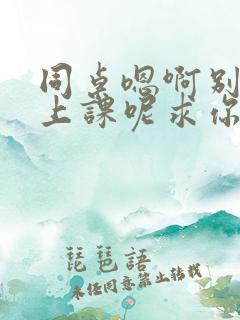 同桌嗯啊别
上課呢求你
琵琶語
未经同意禁止转载